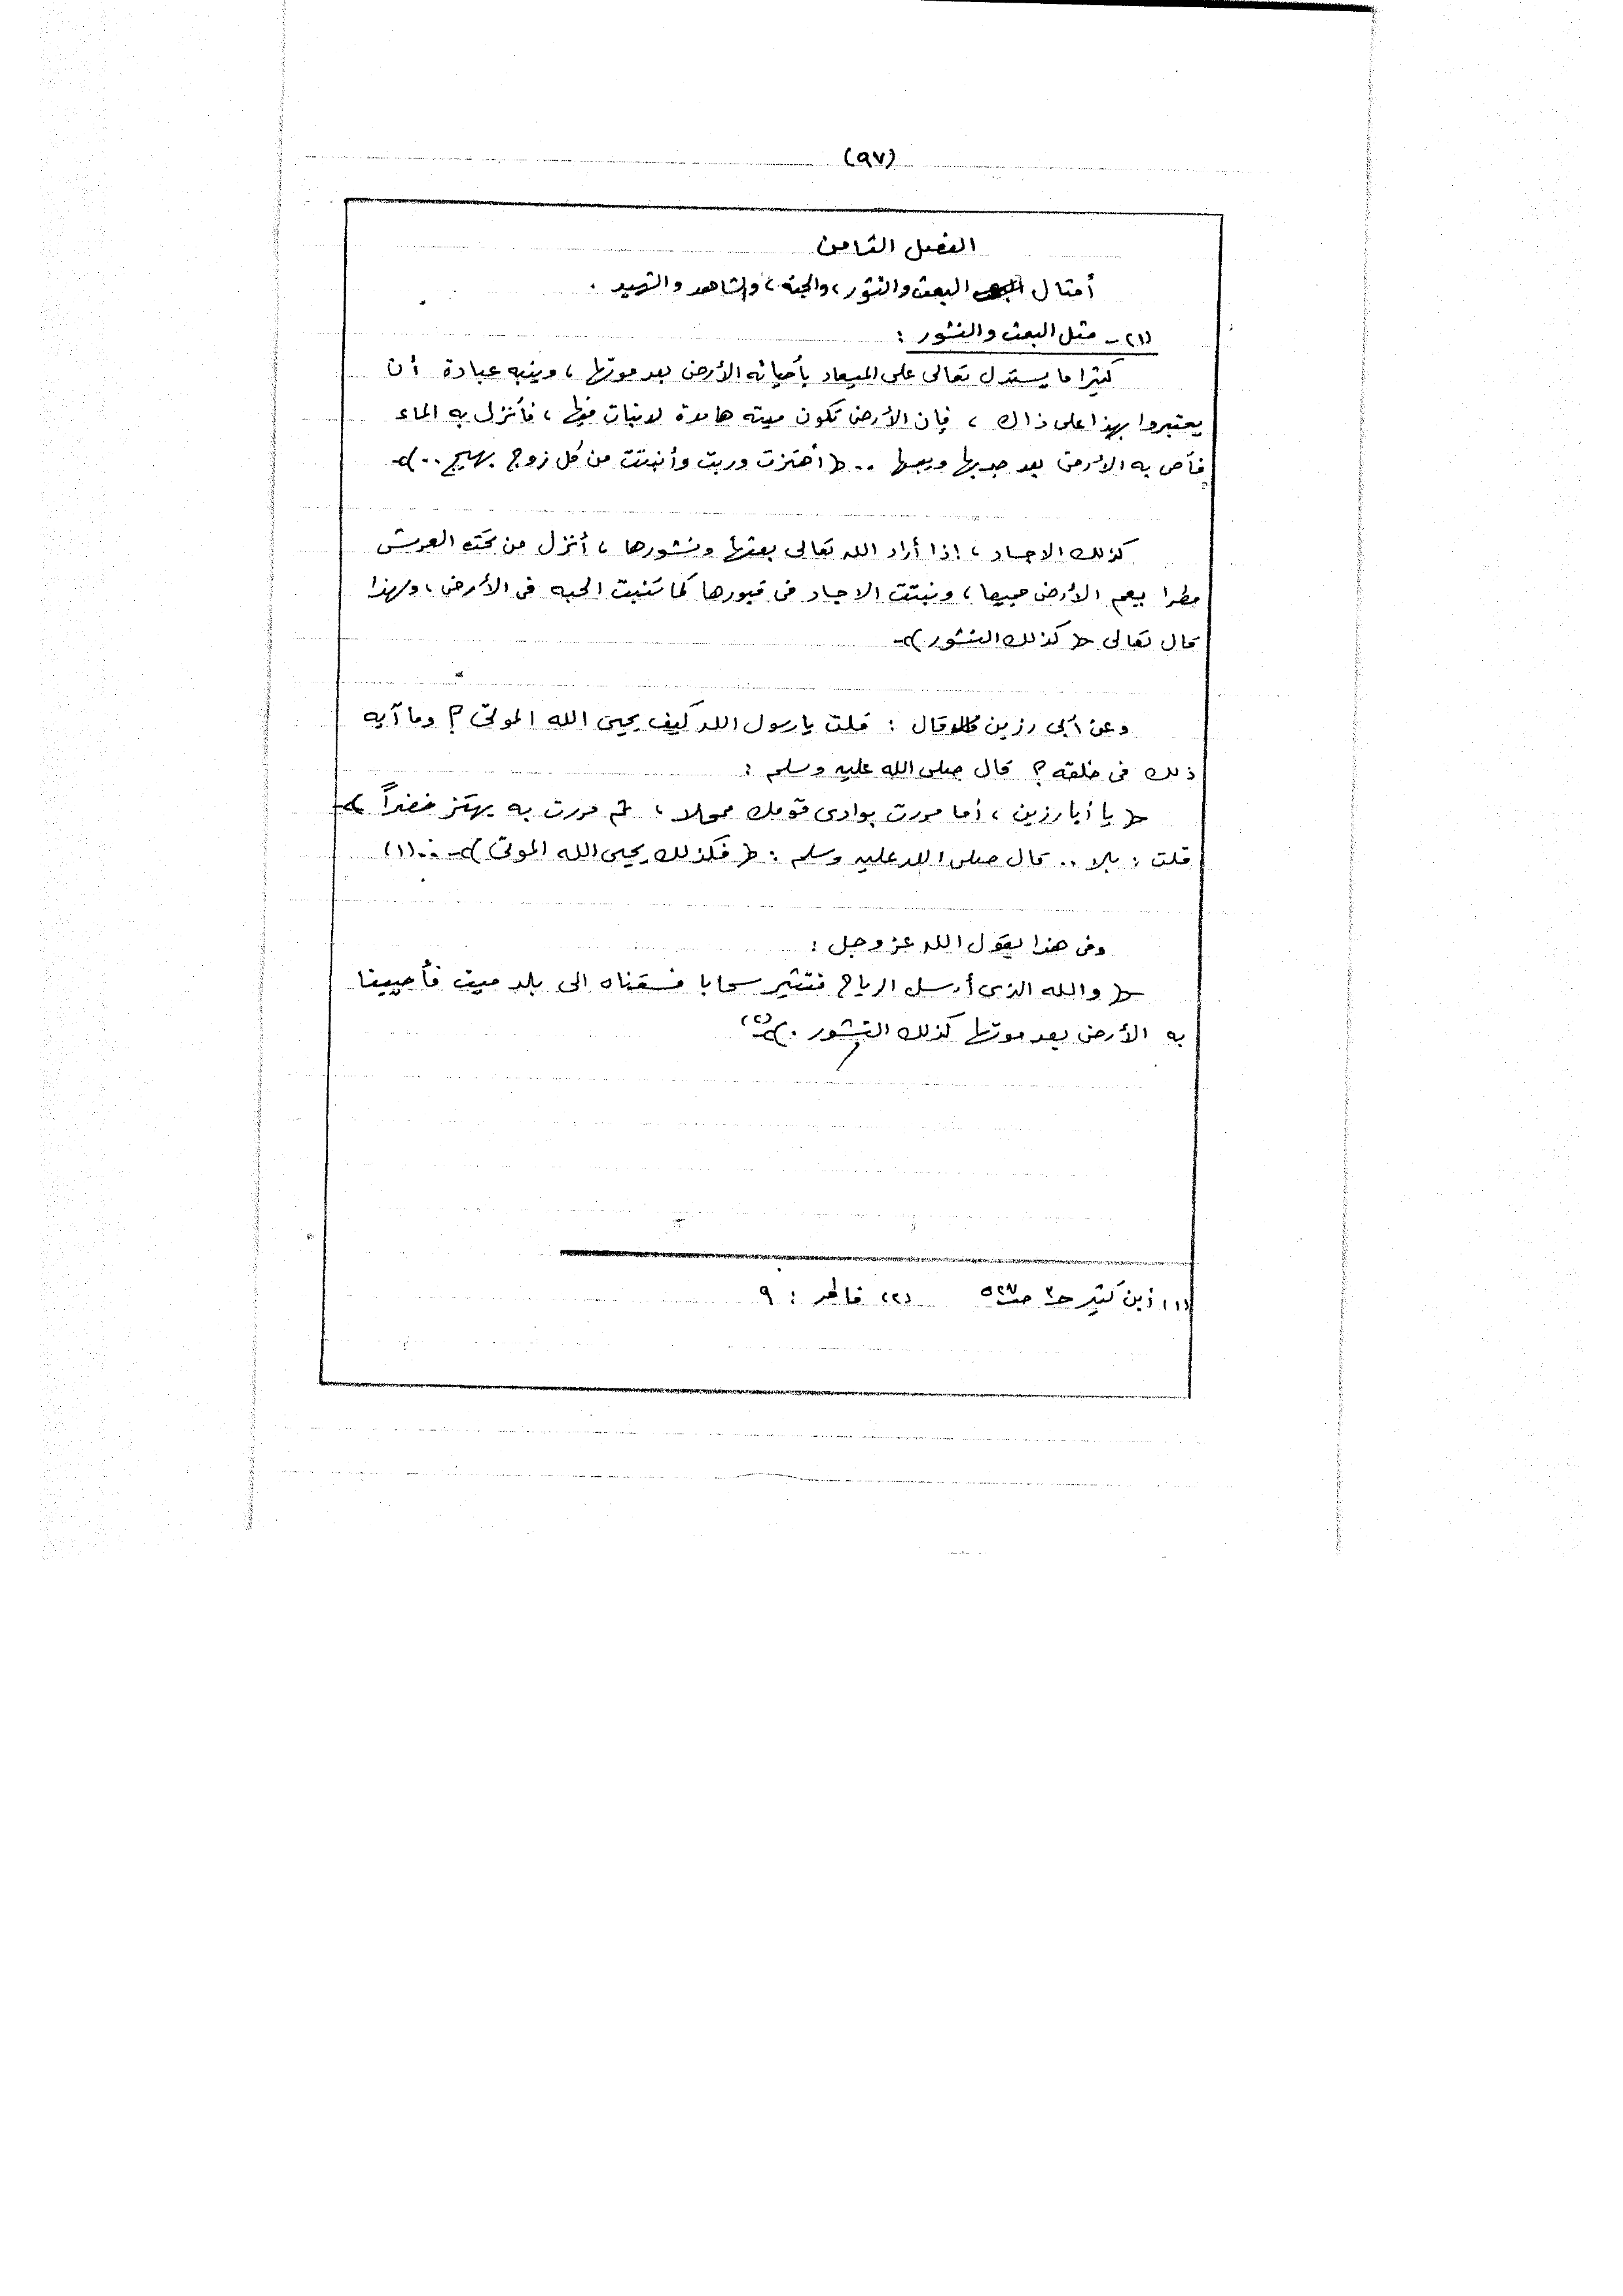 (٩٧)
الفصل الثامن
أمثال البعث والنشور، والجنه، والشاهد والشهيد .
(١) - مثل البعث والنشور :
كثيرا ما يستدل تعالى على الميعاد بأحيائه الأرض بعد موتها ، وينبه عبادة أن
يعتبروا بهذا على ذاك ، فإن الأرض تكون ميته هامدة لا نبات فيها ، فأنزل به الماء
فأحى به الأرض بعد جدبها ويبسها .. ( أهتزت وربت وأنبتت من كل زوج بهيج .. )
كذلك الاجساد ، إذا أراد الله تعالى بعثها ونشورها ، أنزل من تحت العرش
مطرا يعم الأرض جميعها ، ونبتت الاجساد فى قبورها كما تنبت الحبه فى الأرض ، ولهذا
قال تعالى ( كذلك النشور )
وعن أبى رزين قال : قلت يا رسول الله كيف يحيى الله الموتى ؟ وما آيه
ذلك فى خلقه ؟ قال صلى الله عليه وسلم :
( يا أبا رزين ، أما مررت بوادى قومك ممحلا ، ثم مررت به يهتز خضراً )
قلت : بلا .. قال صلى الله عليه وسلم : ( فكذلك يحيى الله الموتى ) .. (١)
وفى هذا يقول الله عز وجل :
( والله الذى أرسل الرياح فتثير سحابا فسقناه الى بلد ميت فأحيينا
به الأرض بعد موتها كذلك النشور . ) (٢)
(١) أبن كثير حـ٣ صـ٥٢٧ (٢) فاطر : ٩